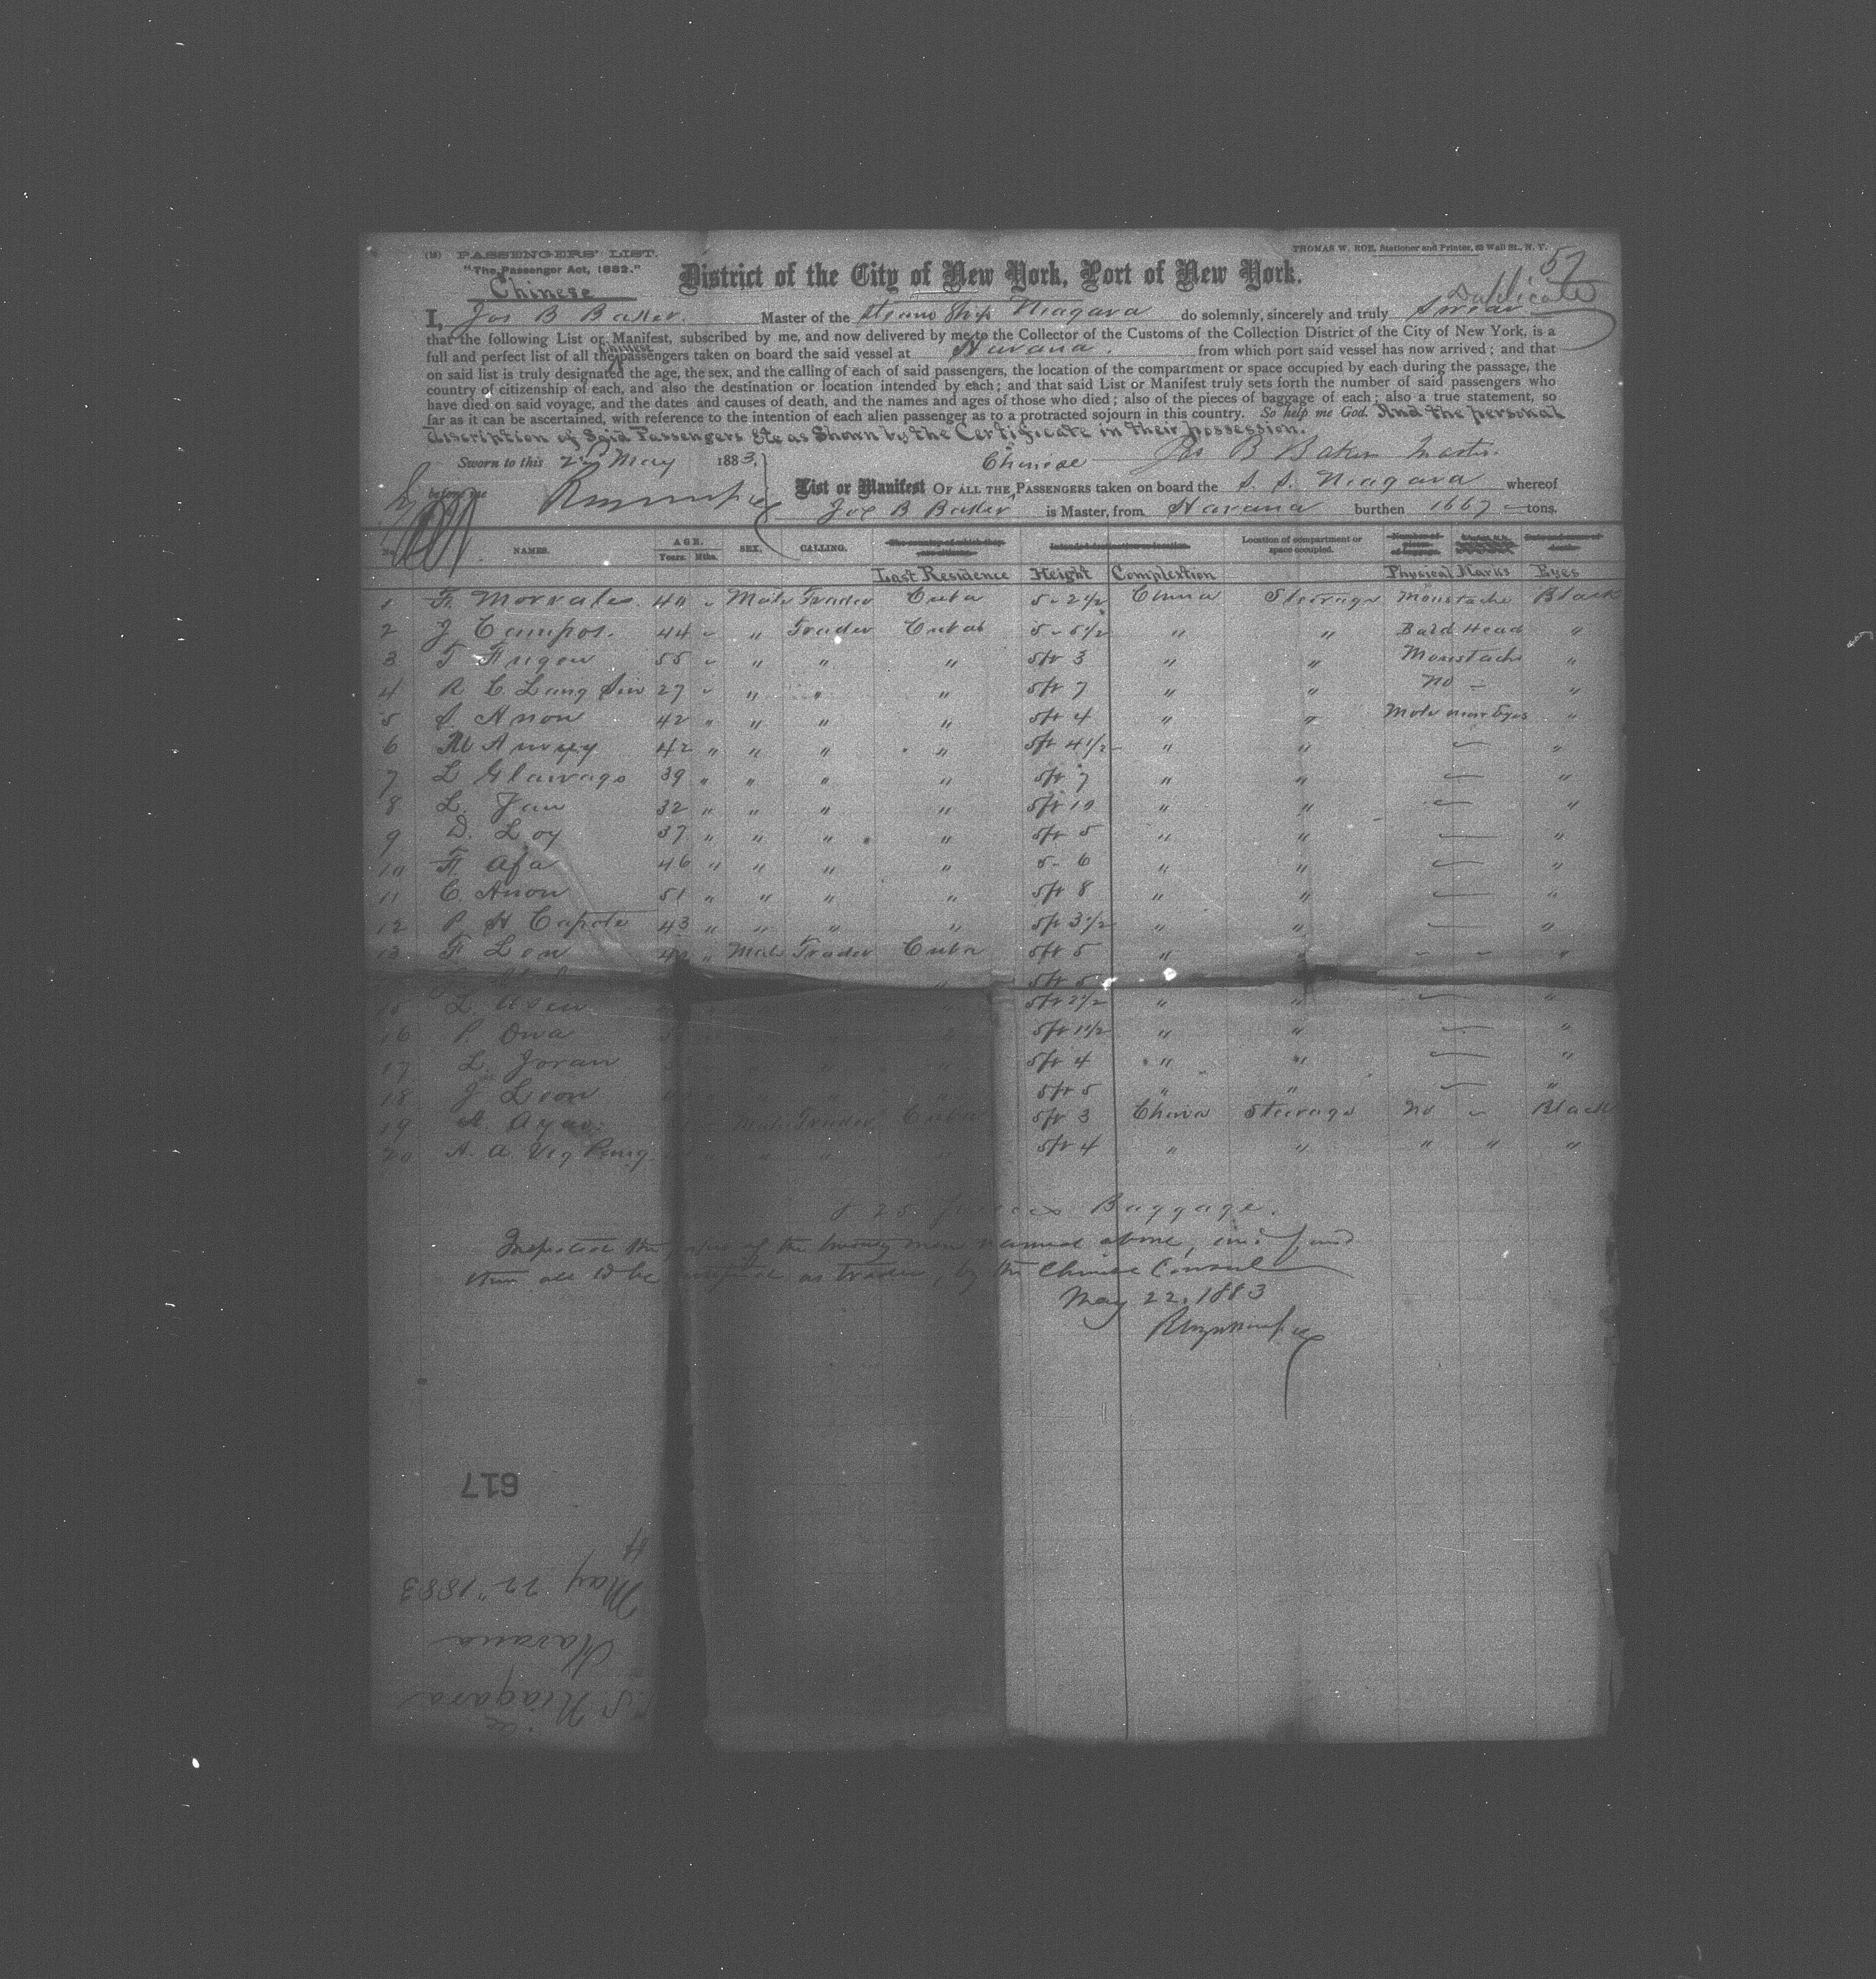 (18) PASSENGERS' LIST.
THOMAS W. ROE, Stationer and Printer, 69 Wall St., N. Y.
57
"The Passenger Act, 1882."
Chinese
District of the City of New York, Port of New York.
Duplicate
I, Jas B Baker. Master of the Steam Ship Niagara do solemnly, sincerely and truly Swear
that the following List or Manifest, subscribed by me, and now delivered by me to the Collector of the Customs of the Collection District of the City of New York, is a
full and perfect list of all the Chinese passengers taken on board the said vessel at Havana. from which port said vessel has now arrived; and that
on said list is truly designated the age, the sex, and the calling of each of said passengers, the location of the compartment or space occupied by each during the passage, the
country of citizenship of each, and also the destination or location intended by each; and that said List or Manifest truly sets forth the number of said passengers who
have died on said voyage, and the dates and causes of death, and the names and ages of those who died; also of the pieces of baggage of each; also a true statement, so
far as it can be ascertained, with reference to the intention of each alien passenger as to a protracted sojourn in this country. So help me God. And the personal
discription of Said Passengers &c as Shown by the Certificate in their possession.
Sworn to this 22 May 1883.
Chinese Jas B Baker Master.
before me
List or Manifest OF ALL THE PASSENGERS taken on board the S. S. Niagara whereof
Jas B Baker is Master, from Havana burthen 1667 tons.
No. NAMES. AGE. Years. Mths. SEX. CALLING. The country of which they are citizens. Intended destination or location. Location of compartment or space occupied. Number of pieces of baggage. Date and cause of death.
Last Residence Height Complextion Physical Marks Eyes
1 F. Morrales 40 " Male Trader Cuba 5-2½ China Steerage Moustache Black
2 J Campos. 44 " " Trader Cuba 5-5½ " " Bald Head "
3 T 55 " " " " 5ft 3 " " Moustache "
4 R C Lang Sin 27 " " " " 5ft 7 " " No - "
5 S. Anon 42 " " " " 5ft 4 " " Mole near Eyes "
6 M 42 " " " " 5ft 4½ " " - "
7 L 39 " " " " 5ft 7 " " - "
8 L. Jan 32 " " " " 5ft 10 " " - "
9 D. Loy 37 " " " " 5ft 5 " " - "
10 F. Afa 46 " " " " 5-6 " " - "
11 C. Anon 51 " " " " 5ft 8 " " - "
12 P. H Capote 43 " " " " 5ft 3½ " " - "
13 F Lon " Male Trader Cuba 5ft 5 - - "
" 5ft 5
15 L. Asen 5ft 2½ " " - "
16 P. Ona 5ft 1½ " " - "
17 L. Joran " 5ft 4 " " - "
18 J Leon " 5ft 5 " " - "
19 A. Ayao. Male Trader Cuba 5ft 3 China Steerage No - Black
20 A. A. " " 5ft 4 " " " " "
25 Pieces Baggage.
Inspected the of the twenty men named above, and find
them all to be certified as traders, by the Chinese Consul
May 22, 1883
617
May 22" 1883
Havana
S. S. Niagara